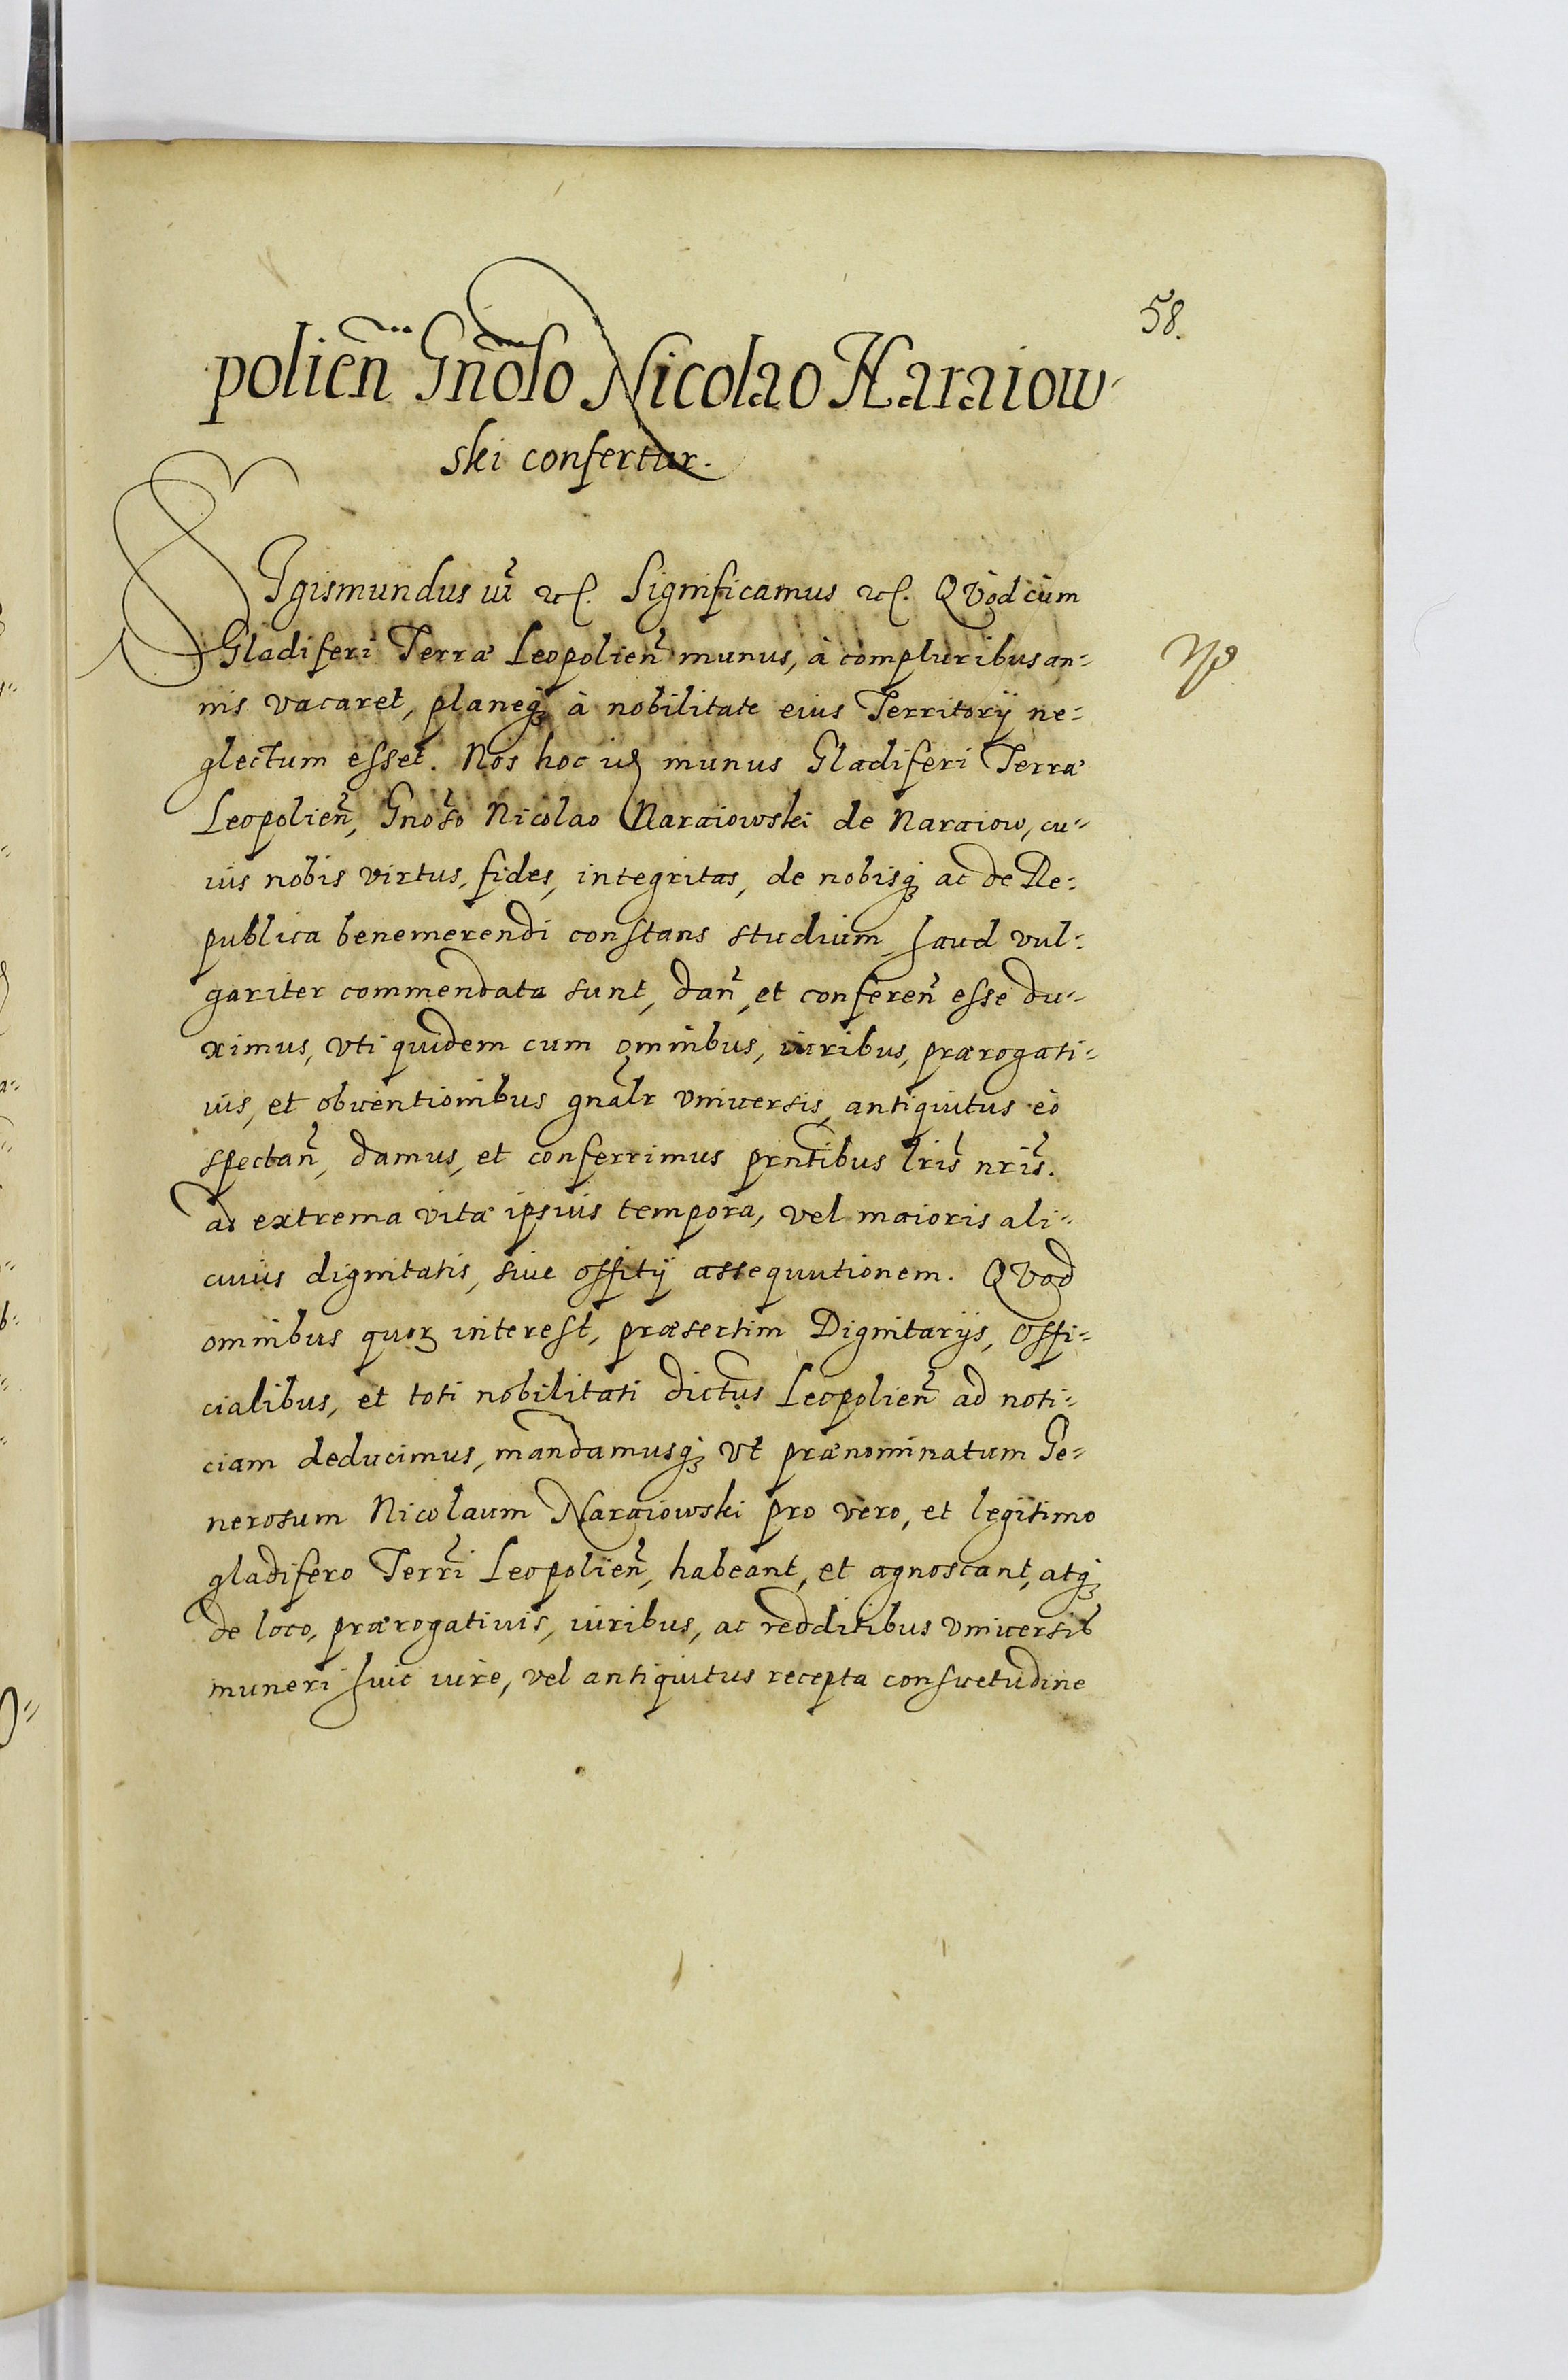 58.
polien̄ Gnōso Nicolao Naraiow-
ski confertur.
SIgismundus iii etc. Significamus etc. QVod cùm
Gladiferi Terræ Leopolien̄ munus, à compluribus an=
nis vacaret, planeq́ꝫ à nobilitate eius Territorÿ ne=
glectum esset. Nos hoc id munus Gladiferi Terræ
Leopolien̄, Gnoso Nicolao Naraiowski de Naraiow, cu=
ius nobis virtus, fides, integritas, de nobisq́ꝫ ac de Re=
publica benemerendi constans studium haud vul=
gariter commendata sunt, dan̄, et conferen̄ esse du=
ximus, vti quidem cum omnibus, iuribus, prærogati=
uis, et obuentionibus gnālr vniuersis, antiquitus eò
spectan̄, damus, et conferrimus prn̄tibus lris̄ nris̄.
ad extrema vitæ ipsius tempora, vel maioris ali=
cuius dignitatis, siue offitÿ assequutionem. QVod
omnibus quoꝝ interest, præsertim Dignitarÿs, Offi=
cialibus, et toti nobilitati dictus Leopolien̄ ad noti=
ciam deducimus, mandamusq́ꝫ vt prænominatum Ge=
nerosum Nicolaum Naraiowski pro vero, et legitimo
gladifero Terrī Leopolien̄, habeant, et agnoscant, atq́ꝫ
de loco, prærogatiuis, iuribus, ac redditibus vniuersis
muneri huic iure, vel antiquitus recepta consuetudine